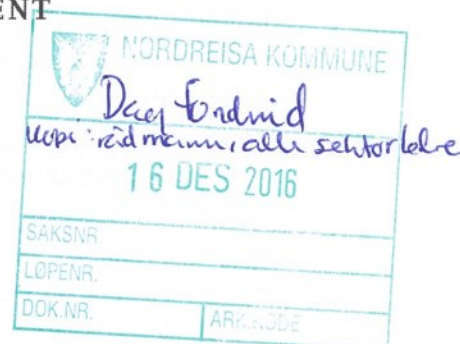 ENT
NORDREISA KOMMUNE
Dag
kopi: rådmann, alle sektorledere
16 DES 2016
SAKSNR.
LØPENR.
DOK.NR.
ARK.KODE